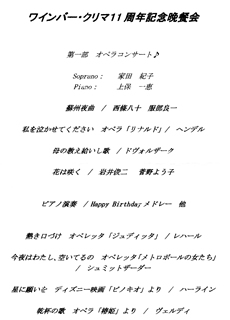 ワインバー・クリマ11周年記念晩餐会
第一部　オペラコンサート♪
Soprano：　家田　紀子
Piano：　上保　一恵
蘇州夜曲　/　西條八十　服部良一
私を泣かせてください　オペラ「リナルド」/　ヘンデル
母の教え給いし歌　/　ドヴォルザーク
花は咲く　/　岩井俊二　菅野よう子
ピアノ演奏　/ Happy Birthdayメドレー　他
熱き口づけ　オペレッタ「ジュディッタ」　/ レハール
今夜はわたし、空いてるの　オペレッタ「メトロポールの女たち」
/　シュミットザーダー
星に願いを　ディズニー映画「ピノキオ」より　/　ハーライン
乾杯の歌　オペラ「椿姫」より　/　ヴェルディ